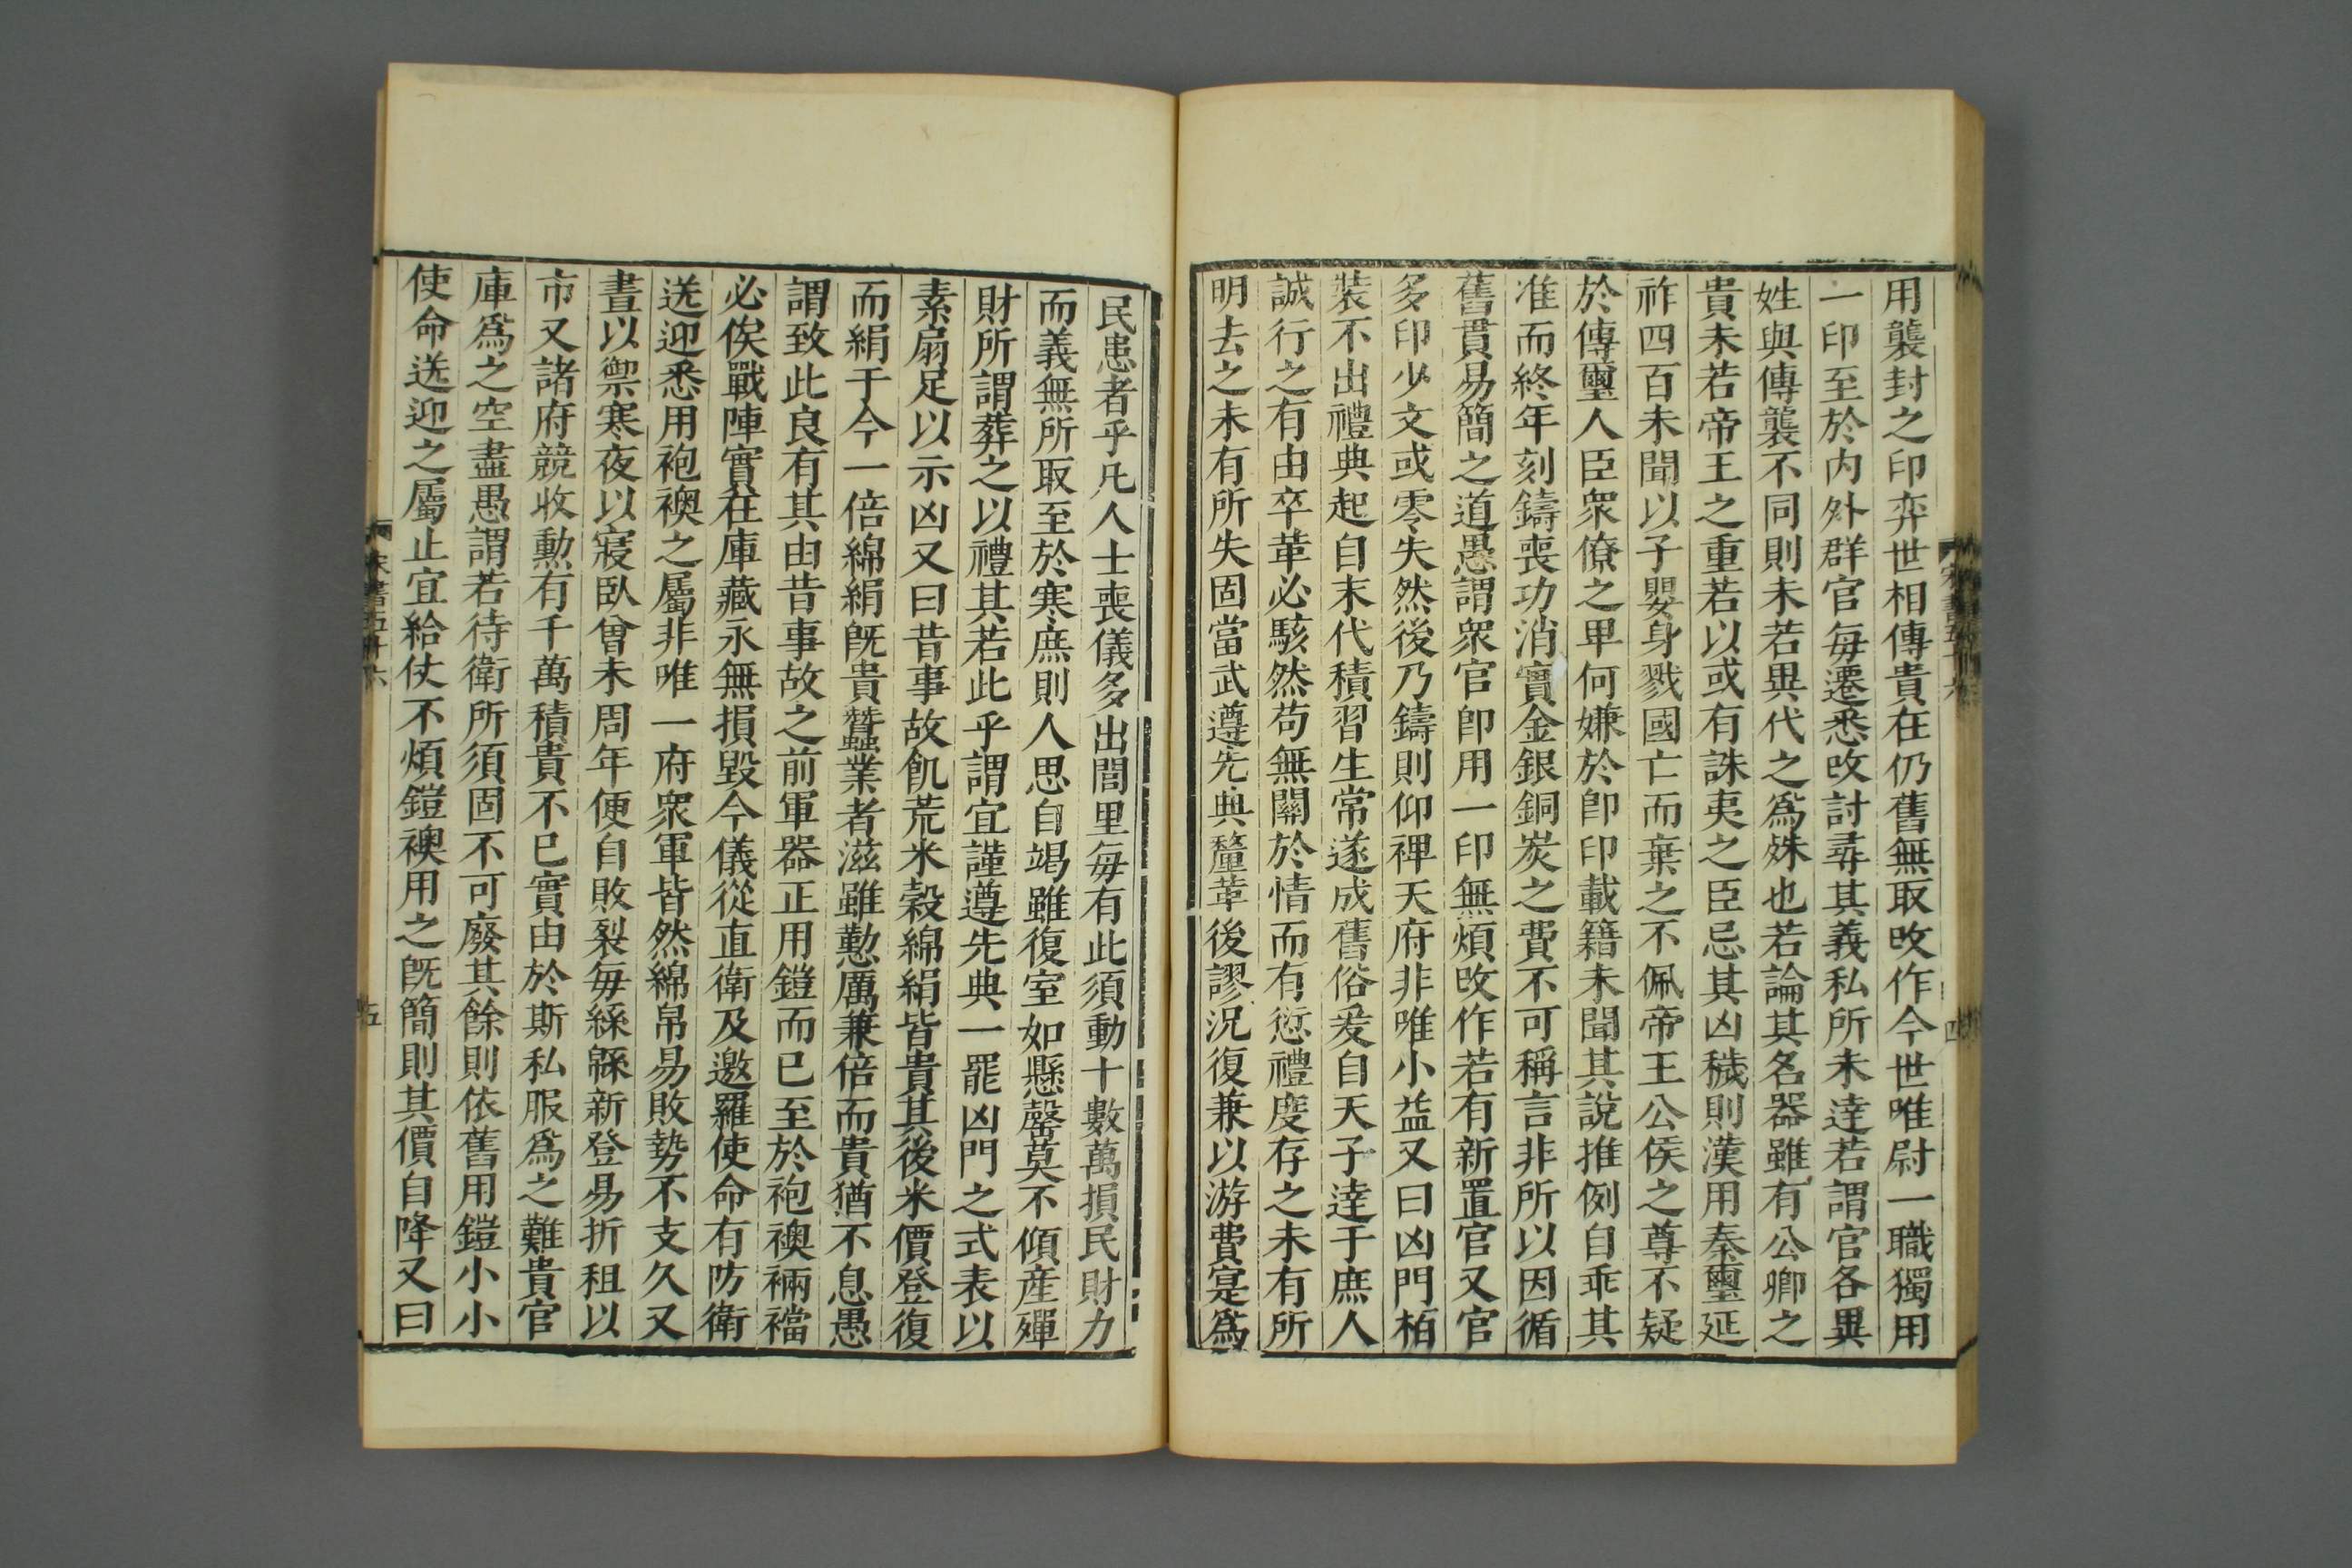 用襲封之印弈世相傳貴在仍舊無取改作今世唯尉一職獨用
一印至於内外群官每遷悉改討尋其義私所未達若謂官各異
姓與傳襲不同則未若異代之爲殊也若論其名器雖有公卿之
貴未若帝王之重若以或有誅夷之臣忌其凶穢則漢用秦璽延
祚四百未聞以子嬰身戮國亡而棄之不佩帝王公侯之尊不疑
於傳璽人臣衆僚之卑何嫌於卽印載籍未聞其說推例自乖其
准而終年刻鑄喪功消實金銀銅炭之費不可稱言非所以因循
舊貫易簡之道愚謂衆官卽用一印無煩改作若有新置官又官
多印少文或零失然後乃鑄則仰裨天府非唯小益又曰凶門栢
裝不出禮典起自末代積習生常遂成舊俗爰自天子達于庶人
誠行之有由卒革必駭然苟無關於情而有愆禮度存之未有所
明去之未有所失固當武遵先典釐革後謬況復兼以游費寔爲
宋書五十六
四
民患者乎凡人士喪儀多出閭里每有此須動十數萬損民財力
而義無所取至於寒庶則人思自竭雖復室如懸罄莫不傾産殫
財所謂葬之以禮其若此乎謂宜謹遵先典一罷凶門之式表以
素扇足以示凶又曰昔事故飢荒米穀綿絹皆貴其後米價登復
而絹于今一倍綿絹旣貴蠶業者滋雖懃厲兼倍而貴猶不息愚
謂致此良有其由昔事故之前軍器正用鎧而已至於袍襖裲襠
必俟戰陣實在庫藏永無損毀今儀從直衛及邀羅使命有防衛
送迎悉用袍襖之屬非唯一府衆軍皆然綿帛易敗勢不支久又
晝以禦寒夜以寢臥曾未周年便自敗裂每絲緜新登易折租以
市又諸府競收動有千萬積貴不已實由於斯私服爲之難貴官
庫爲之空盡愚謂若待衛所須固不可廢其餘則依舊用鎧小小
使命送迎之屬止宜給仗不煩鎧襖用之旣簡則其價自降又曰
宋書五十六
五